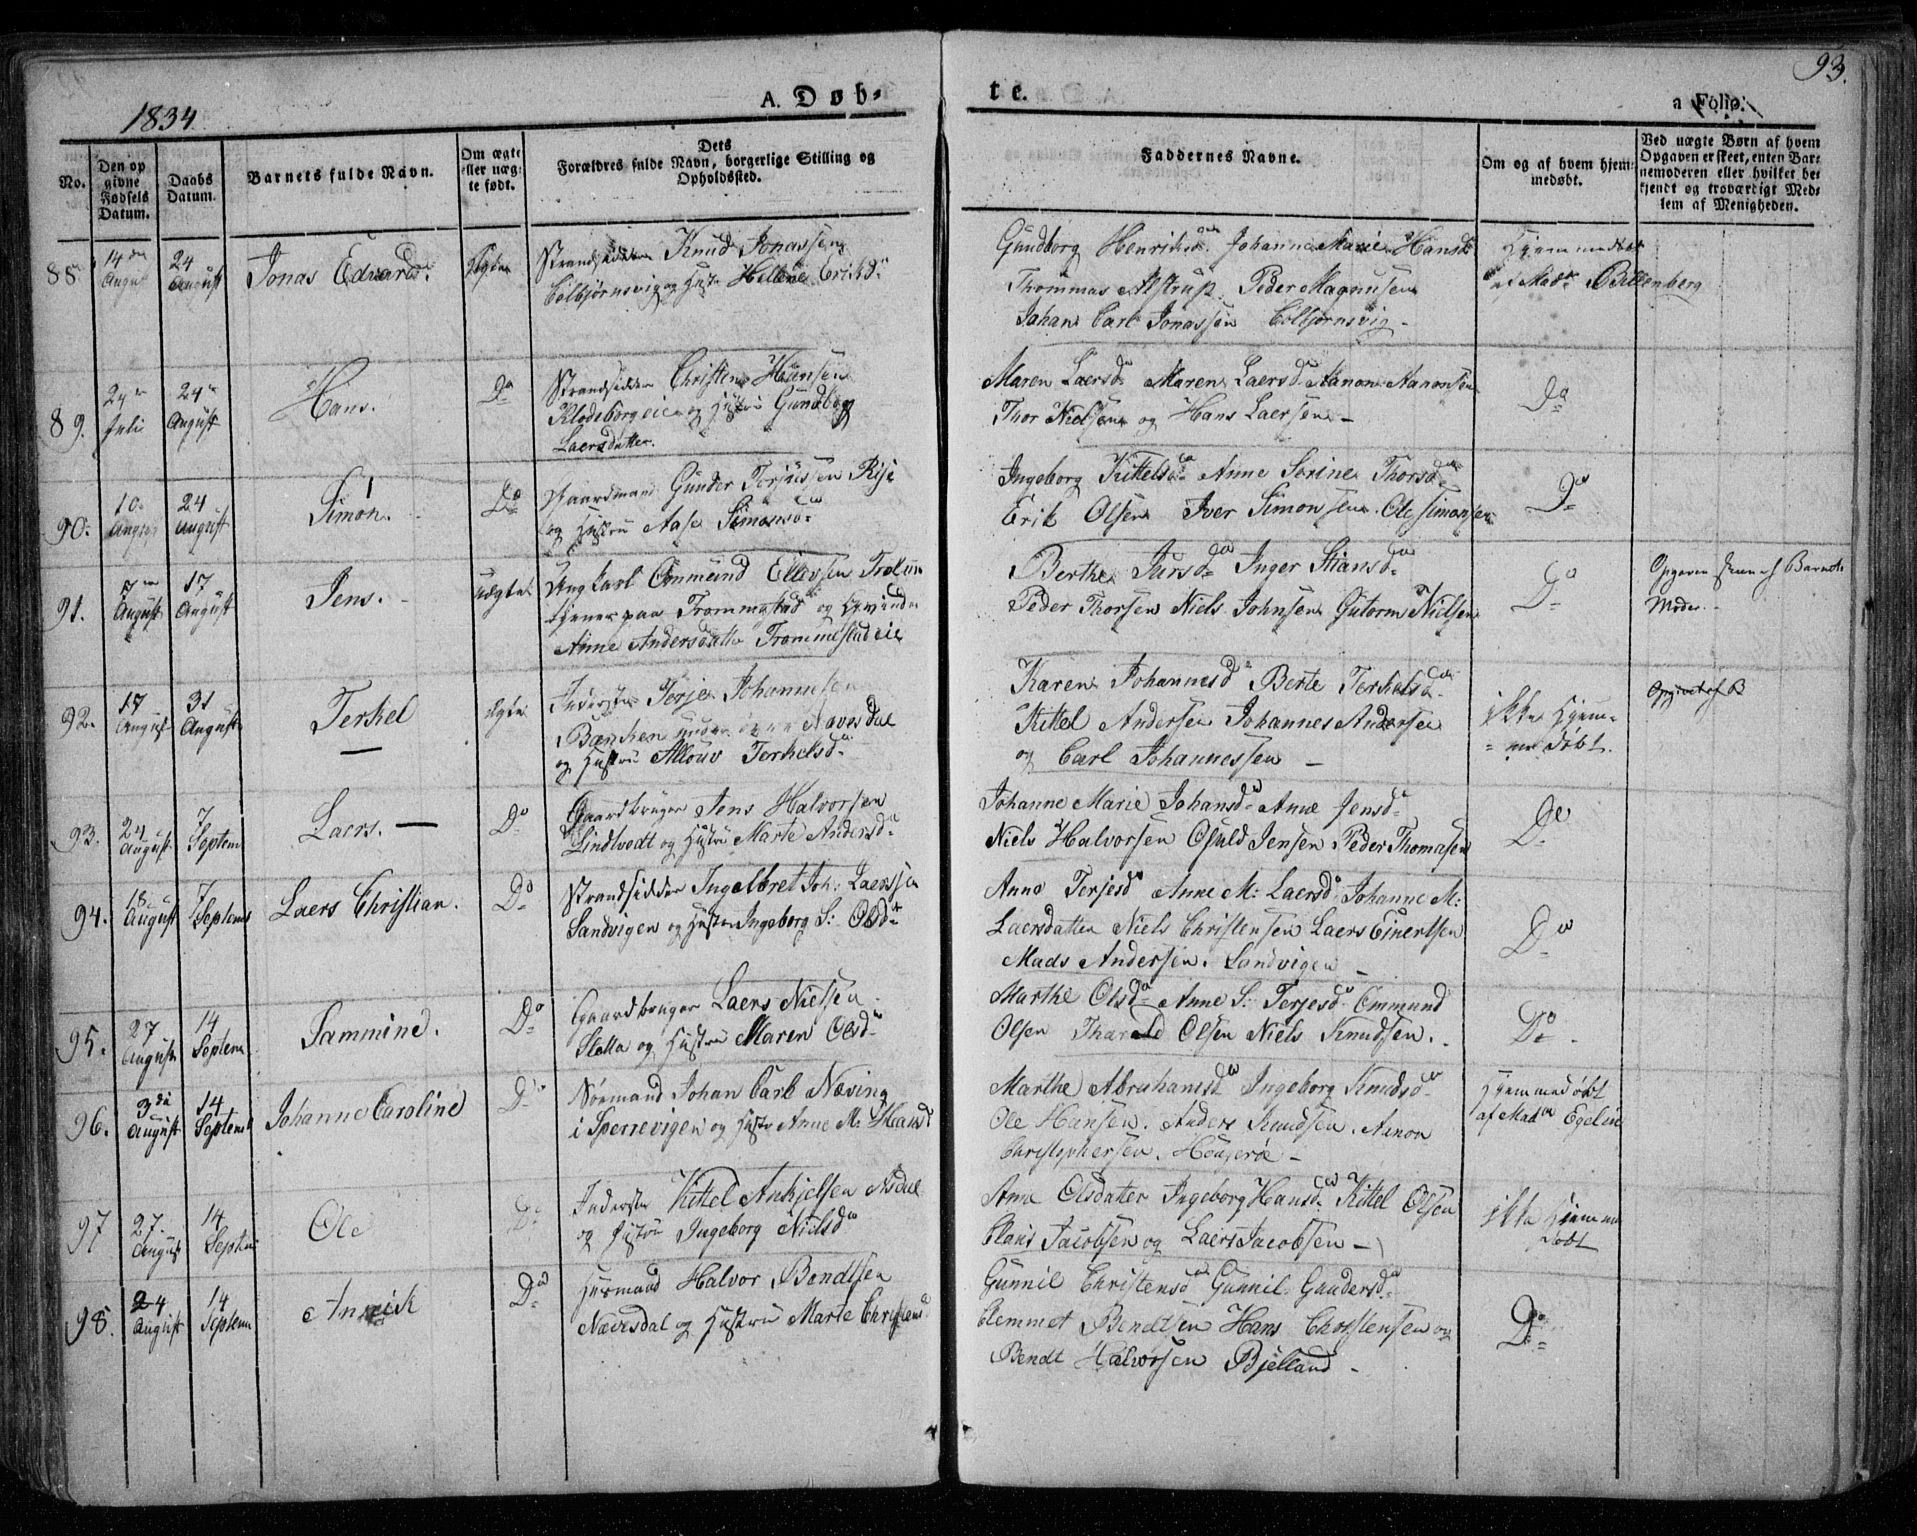 93.
1834
A. Døb-
te.
a Folio.
No.
Den op
givne
Fødsels
Datum.
Daabs
Datum.
Barnets fulde Navn.
Om ægte
eller uæg-
te født.
Dets
Forældres fulde Navn, borgerlige Stilling og
Opholdssted.
Faddernes Navne.
Om og af hvem hjem-
medøbt.
Ved uægte Børn af hvem
Opgaven er skeet, enten Bar-
nemoderen eller hvilket be-
kjendt og troværdigt Med-
lem af Menigheden.
88
14de
August
24
August
Jonas Edvard.
Ægte
Strandsidder Knud Jonassen
Colbjørnsvig og Hustr Hellene Eriksd
Gundborg Henriksd. Johanne Marie Hansd
Thommas Alstrup. Peder Magnusen
Johan Carl Jonassen Colbjørnsvig -
Hjemmedøbt
af Mad Billenberg
89.
24
Julii
24
August
Hans.
Do
Strandsidder Christen Hansen
Klodeborgeie og Hustru Gundborg
Laersdatter.
Maren Laersd Maren Laersd. Aanon Aanonsen
Thor Nielsen og Hans Laersen -
Do
90.
10
August
24
August
Simon.
Do
Gaardmand Gunder Terjussen Rise
og Hustru Aase Simonsd
Ingeborg Kittelsd Anne Sorine Thorsd
Erik Olsen Iver Simonsen. Ole Simonsen
Do
91.
7
August
17
August
Jens.
Uægte
Ungkarl Ommund Ellevsen
tjener paa Frommestad og Qvinde
Anne Andersdatter Trommestad eie
Berthe Jursd Inger Stiansd
Peder Thorsen Niels Johnsen Gutorm Nielsen
Do
Opgaven skeer af Barnets
Moder.
92.
17
August
31
August
Terkel
Ægte
Inderste Terje Johannesen
Bænken under Navesdal
og Hustru Allouv Terkelsd
Karen Johannesd Berte Terkelsd
Kittel Andersen Johannes Andersen
og Carl Johannessen -
ikke Hjem-
medøbt.
93.
24
August
7
Septem
Laers.
Do
Gaardbruger Jens Halvorsen
Lindtvedt og Hustru Marte Andersd
Johanne Marie Johansd Anne Jensd
Niels Halvorsen Osuld Jensen Peder Thomasen
Do
94.
18
August
7
Septemb
Laers Christian.
Do
Strandsidder Ingelbret Joh: Laersen
Sandvigen og Hustru Ingeborg S: Olsd
Anne Terjesd Anne M: Laersd Johanne M:
Laersdatter Niels Christensen Laers Einertsen
Mads Andersen. Sandvigen
Do
95.
27
August
14
Septem
Sammine.
Do
Gaardbruger Laers Nielsen
Sletta og Hustru Maren Olsd
Marthe Olsd Anne S: Terjesd Ommund
Olsen Tharald Olsen Niels Knudsen.
Do
96.
3de
August
14
Septemb
Johanne Caroline
Do
Sørmand Johan Carl Næving
i Sperrevigen og Hustr Anne M: Hansd
Marthe Abrahamsd Ingeborg Knudsd
Ole Hansen. Anders Knudsen. Aanon
Christophersen.
Hjemmedøbt
af Mad Egelie
97
27
August
14
Septem
Ole
Do
Inderste Kittel Ankjelsen Asdal
og Hustru Ingeborg Nielsd
Anne Olsdatter Ingeborg Hansd Kittel Olsen
Claus Jacobsen og Laers Jacobsen -
ikke Hjemme
døbt
98.
24
August
14
Septem
Do
Huusmand Halvor Bendtsen
Navesdal og Hustru Marte Christensd
Gunnil Christensd Gunnil Gundersd
Clemmet Bendtsen Hans Christensen og
Bendt Halvorsen Bjelland -
Do